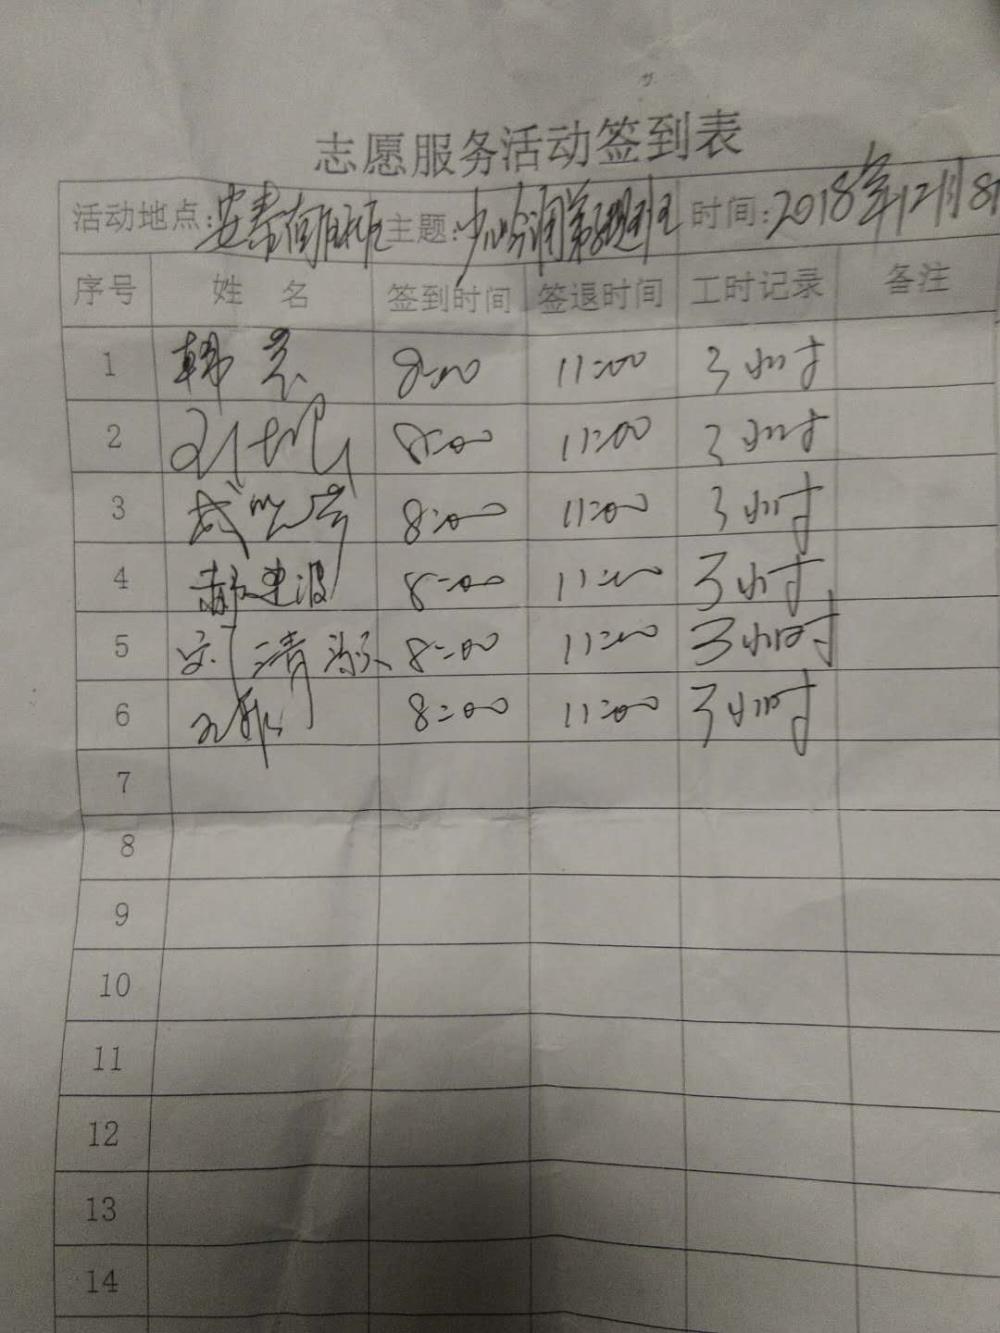 志愿服务活动签到表
活动地点: 主题: 时间: 2018年12月8日
序号 姓 名 签到时间 签退时间 工时记录 备注
1 韩 8:00 11:00 3小时
2 8:00 11:00 3小时
3 8:00 11:00 3小时
4 郝建波 8:00 11:00 3小时
5 8:00 11:00 3小时
6 8:00 11:00 3小时
7
8
9
10
11
12
13
14